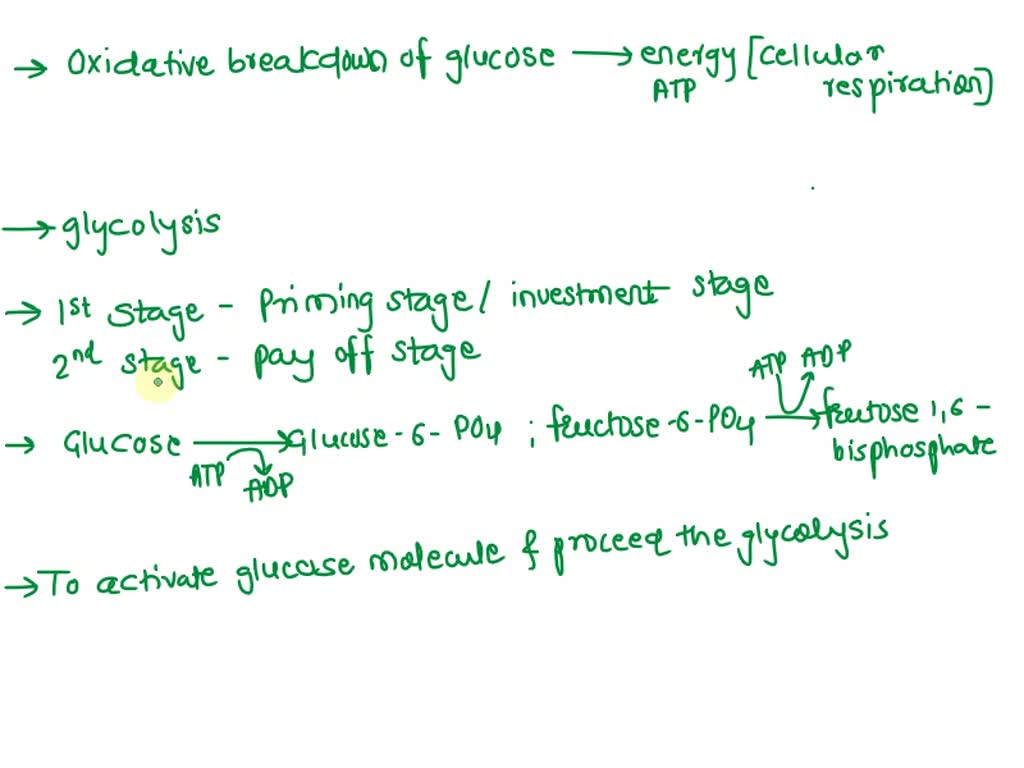 → Oxidative breakdown of glucose → energy [cellular
ATP respiration]
→ glycolysis
→ 1st stage - Priming stage / investment stage
2nd stage - pay off stage
ATP ADP
→ Glucose → Glucose-6-PO4 ; fructose-6-PO4 → fructose 1,6-
bisphosphate
ATP ADP
→ To activate glucose molecule & proceed the glycolysis